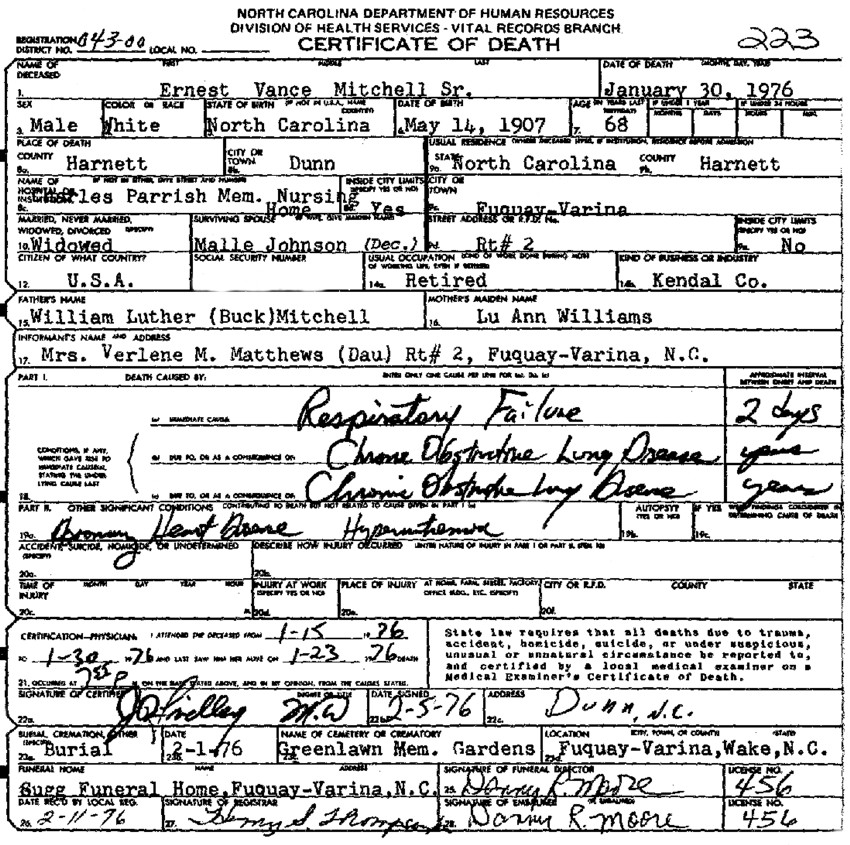 NORTH CAROLINA DEPARTMENT OF HUMAN RESOURCES
DIVISION OF HEALTH SERVICES - VITAL RECORDS BRANCH
REGISTRATION DISTRICT NO. 043-00 LOCAL NO. CERTIFICATE OF DEATH 223
NAME OF DECEASED FIRST MIDDLE LAST DATE OF DEATH (MONTH, DAY, YEAR)
1. Ernest Vance Mitchell Sr. January 30, 1976
SEX COLOR OR RACE STATE OF BIRTH (IF NOT IN U.S.A., NAME COUNTRY) DATE OF BIRTH AGE (IN YEARS LAST BIRTHDAY) IF UNDER 1 YEAR IF UNDER 24 HOURS
MONTHS DAYS HOURS MIN.
3. Male White North Carolina 6. May 14, 1907 7. 68
PLACE OF DEATH USUAL RESIDENCE (WHERE DECEASED LIVED, IF INSTITUTION, RESIDENCE BEFORE ADMISSION)
COUNTY Harnett CITY OR TOWN Dunn STATE North Carolina COUNTY Harnett
8a. 8b. 9a. 9b.
NAME OF HOSPITAL OR INSTITUTION (IF NOT IN EITHER, GIVE STREET AND NUMBER) INSIDE CITY LIMITS (SPECIFY YES OR NO) CITY OR TOWN
8c. Parrish Mem. Nursing Home 8d. Yes 9c. Fuquay-Varina
MARRIED, NEVER MARRIED, WIDOWED, DIVORCED (SPECIFY) SURVIVING SPOUSE (IF WIFE, GIVE MAIDEN NAME) STREET ADDRESS OR R.F.D. No. INSIDE CITY LIMITS (SPECIFY YES OR NO)
10. Widowed Malle Johnson (Dec.) 9d. Rt# 2 9e. No
CITIZEN OF WHAT COUNTRY? SOCIAL SECURITY NUMBER USUAL OCCUPATION (KIND OF WORK DONE DURING MOST OF WORKING LIFE, EVEN IF RETIRED) KIND OF BUSINESS OR INDUSTRY
12. U.S.A. 14a. Retired 14b. Kendal Co.
FATHER'S NAME MOTHER'S MAIDEN NAME
15. William Luther (Buck)Mitchell 16. Lu Ann Williams
INFORMANT'S NAME AND ADDRESS
17. Mrs. Verlene M. Matthews (Dau) Rt# 2, Fuquay-Varina, N.C.
PART I. DEATH CAUSED BY: ENTER ONLY ONE CAUSE PER LINE FOR (a), (b), (c) APPROXIMATE INTERVAL BETWEEN ONSET AND DEATH
(a) IMMEDIATE CAUSE Respiratory Failure 2 days
CONDITIONS, IF ANY, WHICH GAVE RISE TO IMMEDIATE CAUSE(S), STATING THE UNDERLYING CAUSE LAST
(b) DUE TO, OR AS A CONSEQUENCE OF: Chronic Obstructive Lung Disease years
18. (c) DUE TO, OR AS A CONSEQUENCE OF: Chronic Obstructive Lung Disease years
PART II. OTHER SIGNIFICANT CONDITIONS CONTRIBUTING TO DEATH BUT NOT RELATED TO CAUSE GIVEN IN PART I (a) AUTOPSY (YES OR NO) IF YES WERE FINDINGS CONSIDERED IN DETERMINING CAUSE OF DEATH
19a. Coronary Heart Disease 19b. 19c.
ACCIDENT, SUICIDE, HOMICIDE, OR UNDETERMINED (SPECIFY) DESCRIBE HOW INJURY OCCURRED (ENTER NATURE OF INJURY IN PART I OR PART II, ITEM 18)
20a. 20b.
TIME OF INJURY MONTH DAY YEAR HOUR INJURY AT WORK (SPECIFY YES OR NO) PLACE OF INJURY AT HOME, FARM, STREET, FACTORY, OFFICE BLDG., ETC. (SPECIFY) CITY OR R.F.D. COUNTY STATE
20c. 20d. 20e. 20f.
CERTIFICATION-PHYSICIAN: I ATTENDED THE DECEASED FROM 1-15 1976
TO 1-30 1976 AND LAST SAW HIM/HER ALIVE ON 1-23 1976 DEATH
21. OCCURRED AT M. ON THE DATE STATED ABOVE, AND IN MY OPINION, FROM THE CAUSES STATED.
State law requires that all deaths due to trauma,
accident, homicide, suicide, or under suspicious,
unusual or unnatural circumstance be reported to,
and certified by a local medical examiner on a
Medical Examiner's Certificate of Death.
SIGNATURE OF CERTIFIER DEGREE OR TITLE DATE SIGNED ADDRESS
22a. 22b. 2-5-76 22c. Dunn, N.C.
BURIAL, CREMATION, OTHER (SPECIFY) DATE NAME OF CEMETERY OR CREMATORY LOCATION (CITY, TOWN, OR COUNTY) (STATE)
23a. Burial 23b. 2-1-76 23c. Greenlawn Mem. Gardens 23d. Fuquay-Varina,Wake,N.C.
FUNERAL HOME NAME ADDRESS SIGNATURE OF FUNERAL DIRECTOR LICENSE NO.
Sugg Funeral Home,Fuquay-Varina,N.C. 25. Danny R. Moore 456
DATE REC'D BY LOCAL REG. SIGNATURE OF REGISTRAR SIGNATURE OF EMBALMER LICENSE NO.
26. 2-11-76 27. Henry S. Thompson 28. Danny R. Moore 456